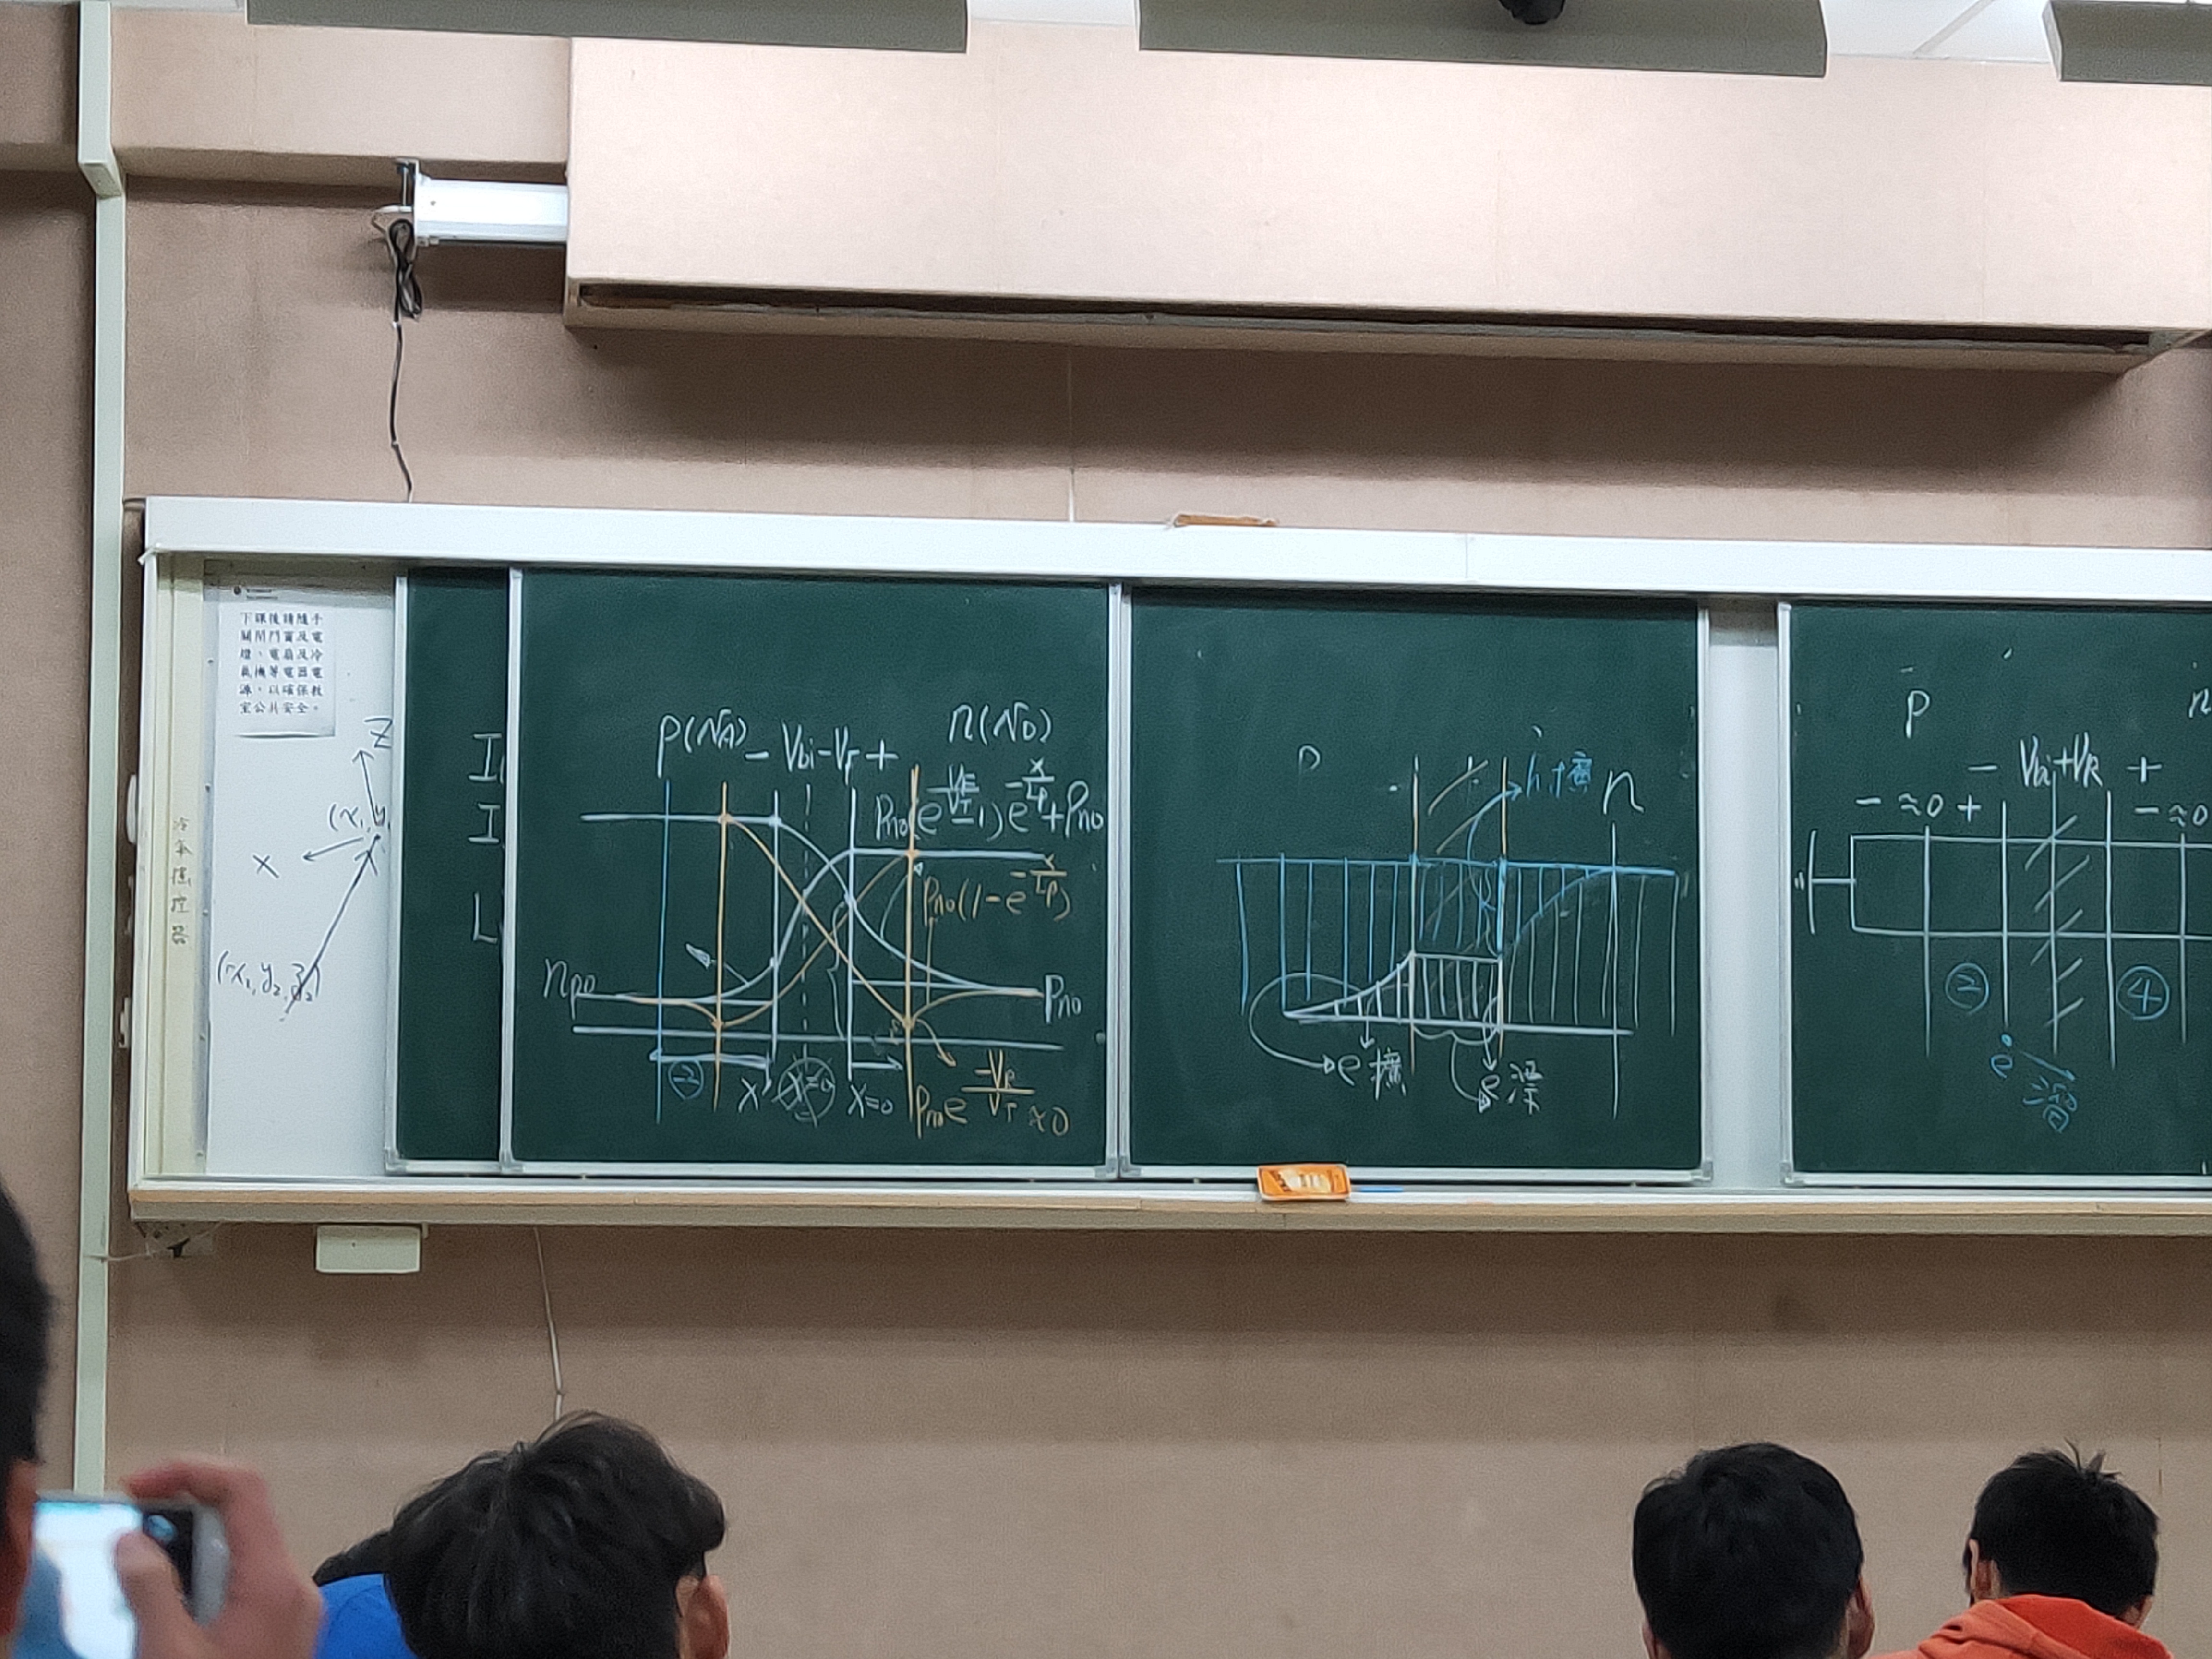 下課後請隨手
關閉門窗及電
燈、電扇及冷
氣機等電器電
源，以確保教
室公共安全。
冷氣搖控器
Z
(x, y,
x
(x₁, y₂, z₂)
I
I
L
p(N_A) - V_bi - V_F + n(N_D)
P_no(e^{V_F/V_T} - 1)e^{-x/L_p} + P_no
P_no(1 - e^{-x/L_p})
n_po
P_no
② x' x=0 x=0
P_no e^{-V_R/V_T} ≈ 0
p
h 擴
n
e 擴
e 漂
p
n
- V_bi + V_R +
- ≈0 +
- ≈0
② ④
e